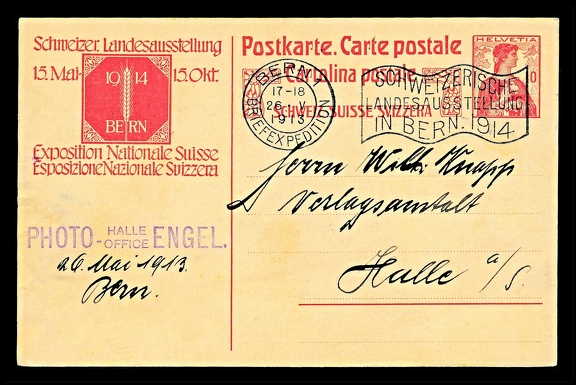 Schweizer. Landesausstellung
15. Mai - 15. Okt.
1914
BERN
Exposition Nationale Suisse
Esposizione Nazionale Svizzera
PHOTO-HALLE OFFICE ENGEL.
26. Mai 1913.
Bern.
Postkarte. Carte postale
Cartolina postale
SCHWEIZ. SUISSE. SVIZZERA
HELVETIA
10
BERN 1
17-18
26. V.
1913
BRIEFEXPEDITION
SCHWEIZERISCHE
LANDESAUSSTELLUNG
IN BERN. 1914
Herrn Wilh. Knapp
Verlagsanstalt
Halle a/S.